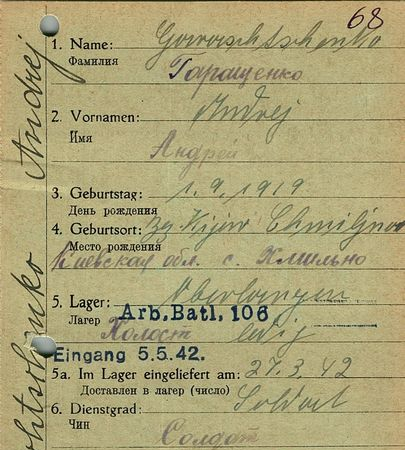 68
1. Name: Gorraschtschenko
Фамилия
Гаращенко
2. Vornamen: Andrej
Имя
Андрей
3. Geburtstag: 1. 9. 1919
День рождения
4. Geburtsort: Bz Kijew Chmiljnow
Место рождения
Киевская обл. с. Хмильно
5. Lager: Oberlangen
Лагер
Arb. Batl. 106
Холост ledig
Eingang 5.5.42.
5a. Im Lager eingeliefert am: 27. 3. 42
Доставлен в лагер (число)
6. Dienstgrad: Soldat
Чин
Солдат
Andrej